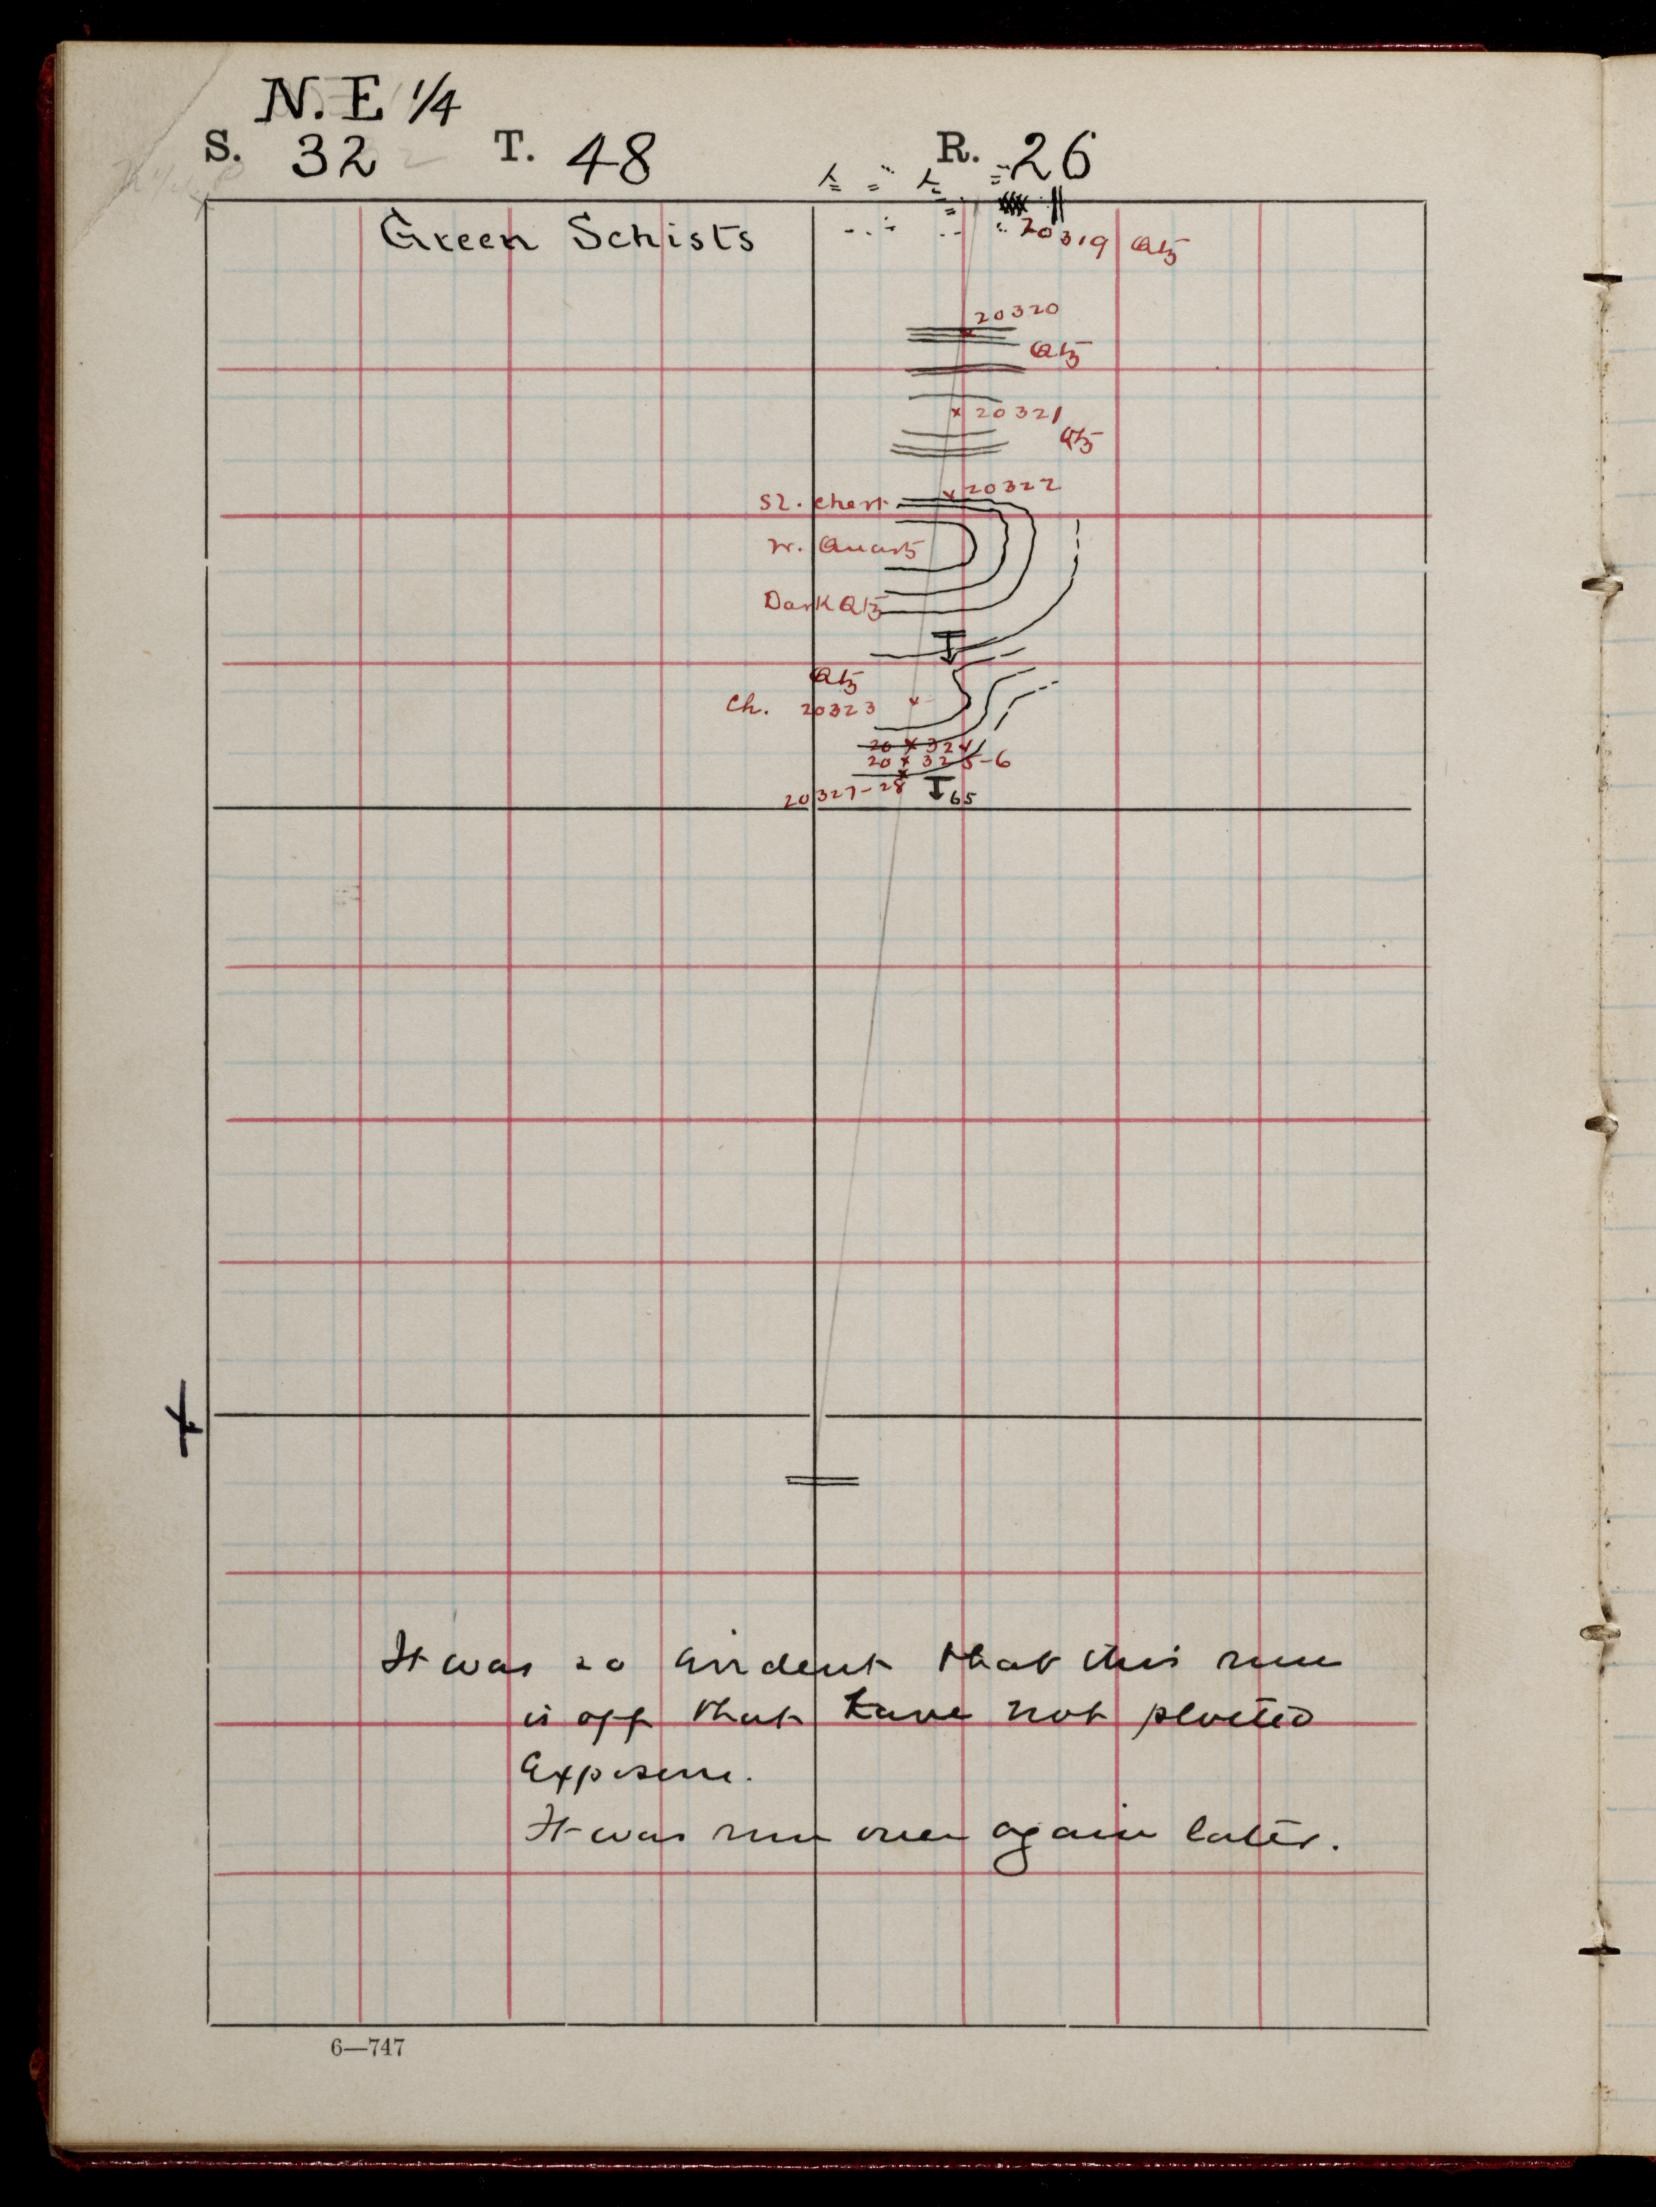 N.E 1/4
S. 32 T. 48 R. 26
Green Schists
20319 Qtz
20320
Qtz
20321
Qtz
20322
Sl. chert
W. Quartz
Dark Qtz
Qtz
Ch. 20323
20 x 324
20 x 325-6
20327-28
65
It was so evident that this run
is off that have not plotted
Exposure.
It was run over again later.
6—747